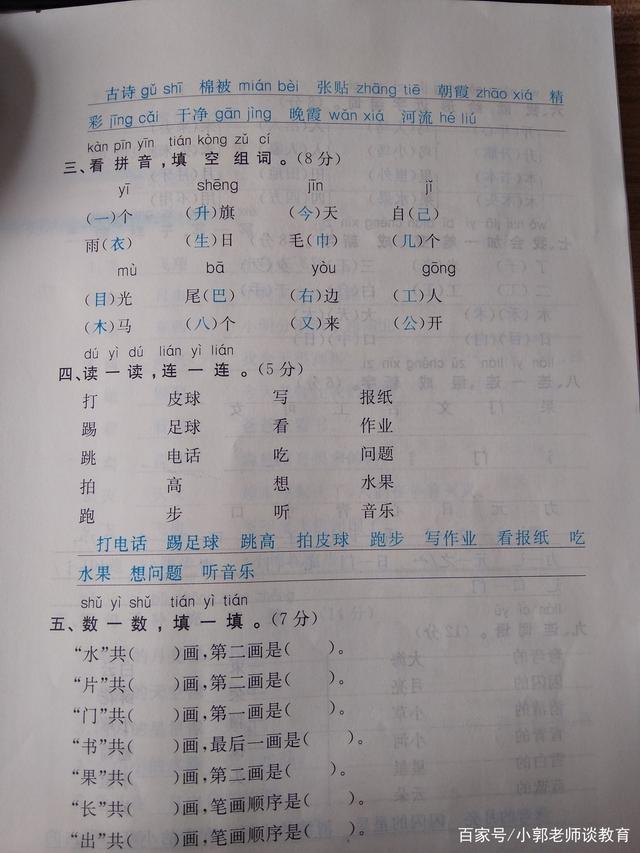 古诗 gǔ shī 棉被 mián bèi 张贴 zhāng tiē 朝霞 zhāo xiá 精
彩 jīng cǎi 干净 gān jìng 晚霞 wǎn xiá 河流 hé liú
kàn pīn yīn tián kòng zǔ cí
三、看拼音,填空组词。(8分)
yī shēng jīn jǐ
(一)个 (升)旗 (今)天 自(己)
雨(衣) (生)日 毛(巾) (几)个
mù bā yòu gōng
(目)光 尾(巴) (右)边 (工)人
(木)马 (八)个 (又)来 (公)开
dú yì dú lián yì lián
四、读一读,连一连。(5分)
打 皮球 写 报纸
踢 足球 看 作业
跳 电话 吃 问题
拍 高 想 水果
跑 步 听 音乐
打电话 踢足球 跳高 拍皮球 跑步 写作业 看报纸 吃
水果 想问题 听音乐
shǔ yì shǔ tián yì tián
五、数一数,填一填。(7分)
“水”共( )画,第二画是( )。
“片”共( )画,第二画是( )。
“门”共( )画,第一画是( )。
“书”共( )画,最后一画是( )。
“果”共( )画,第二画是( )。
“长”共( )画,笔画顺序是( )。
“出”共( )画,笔画顺序是( )。
百家号/小郭老师谈教育